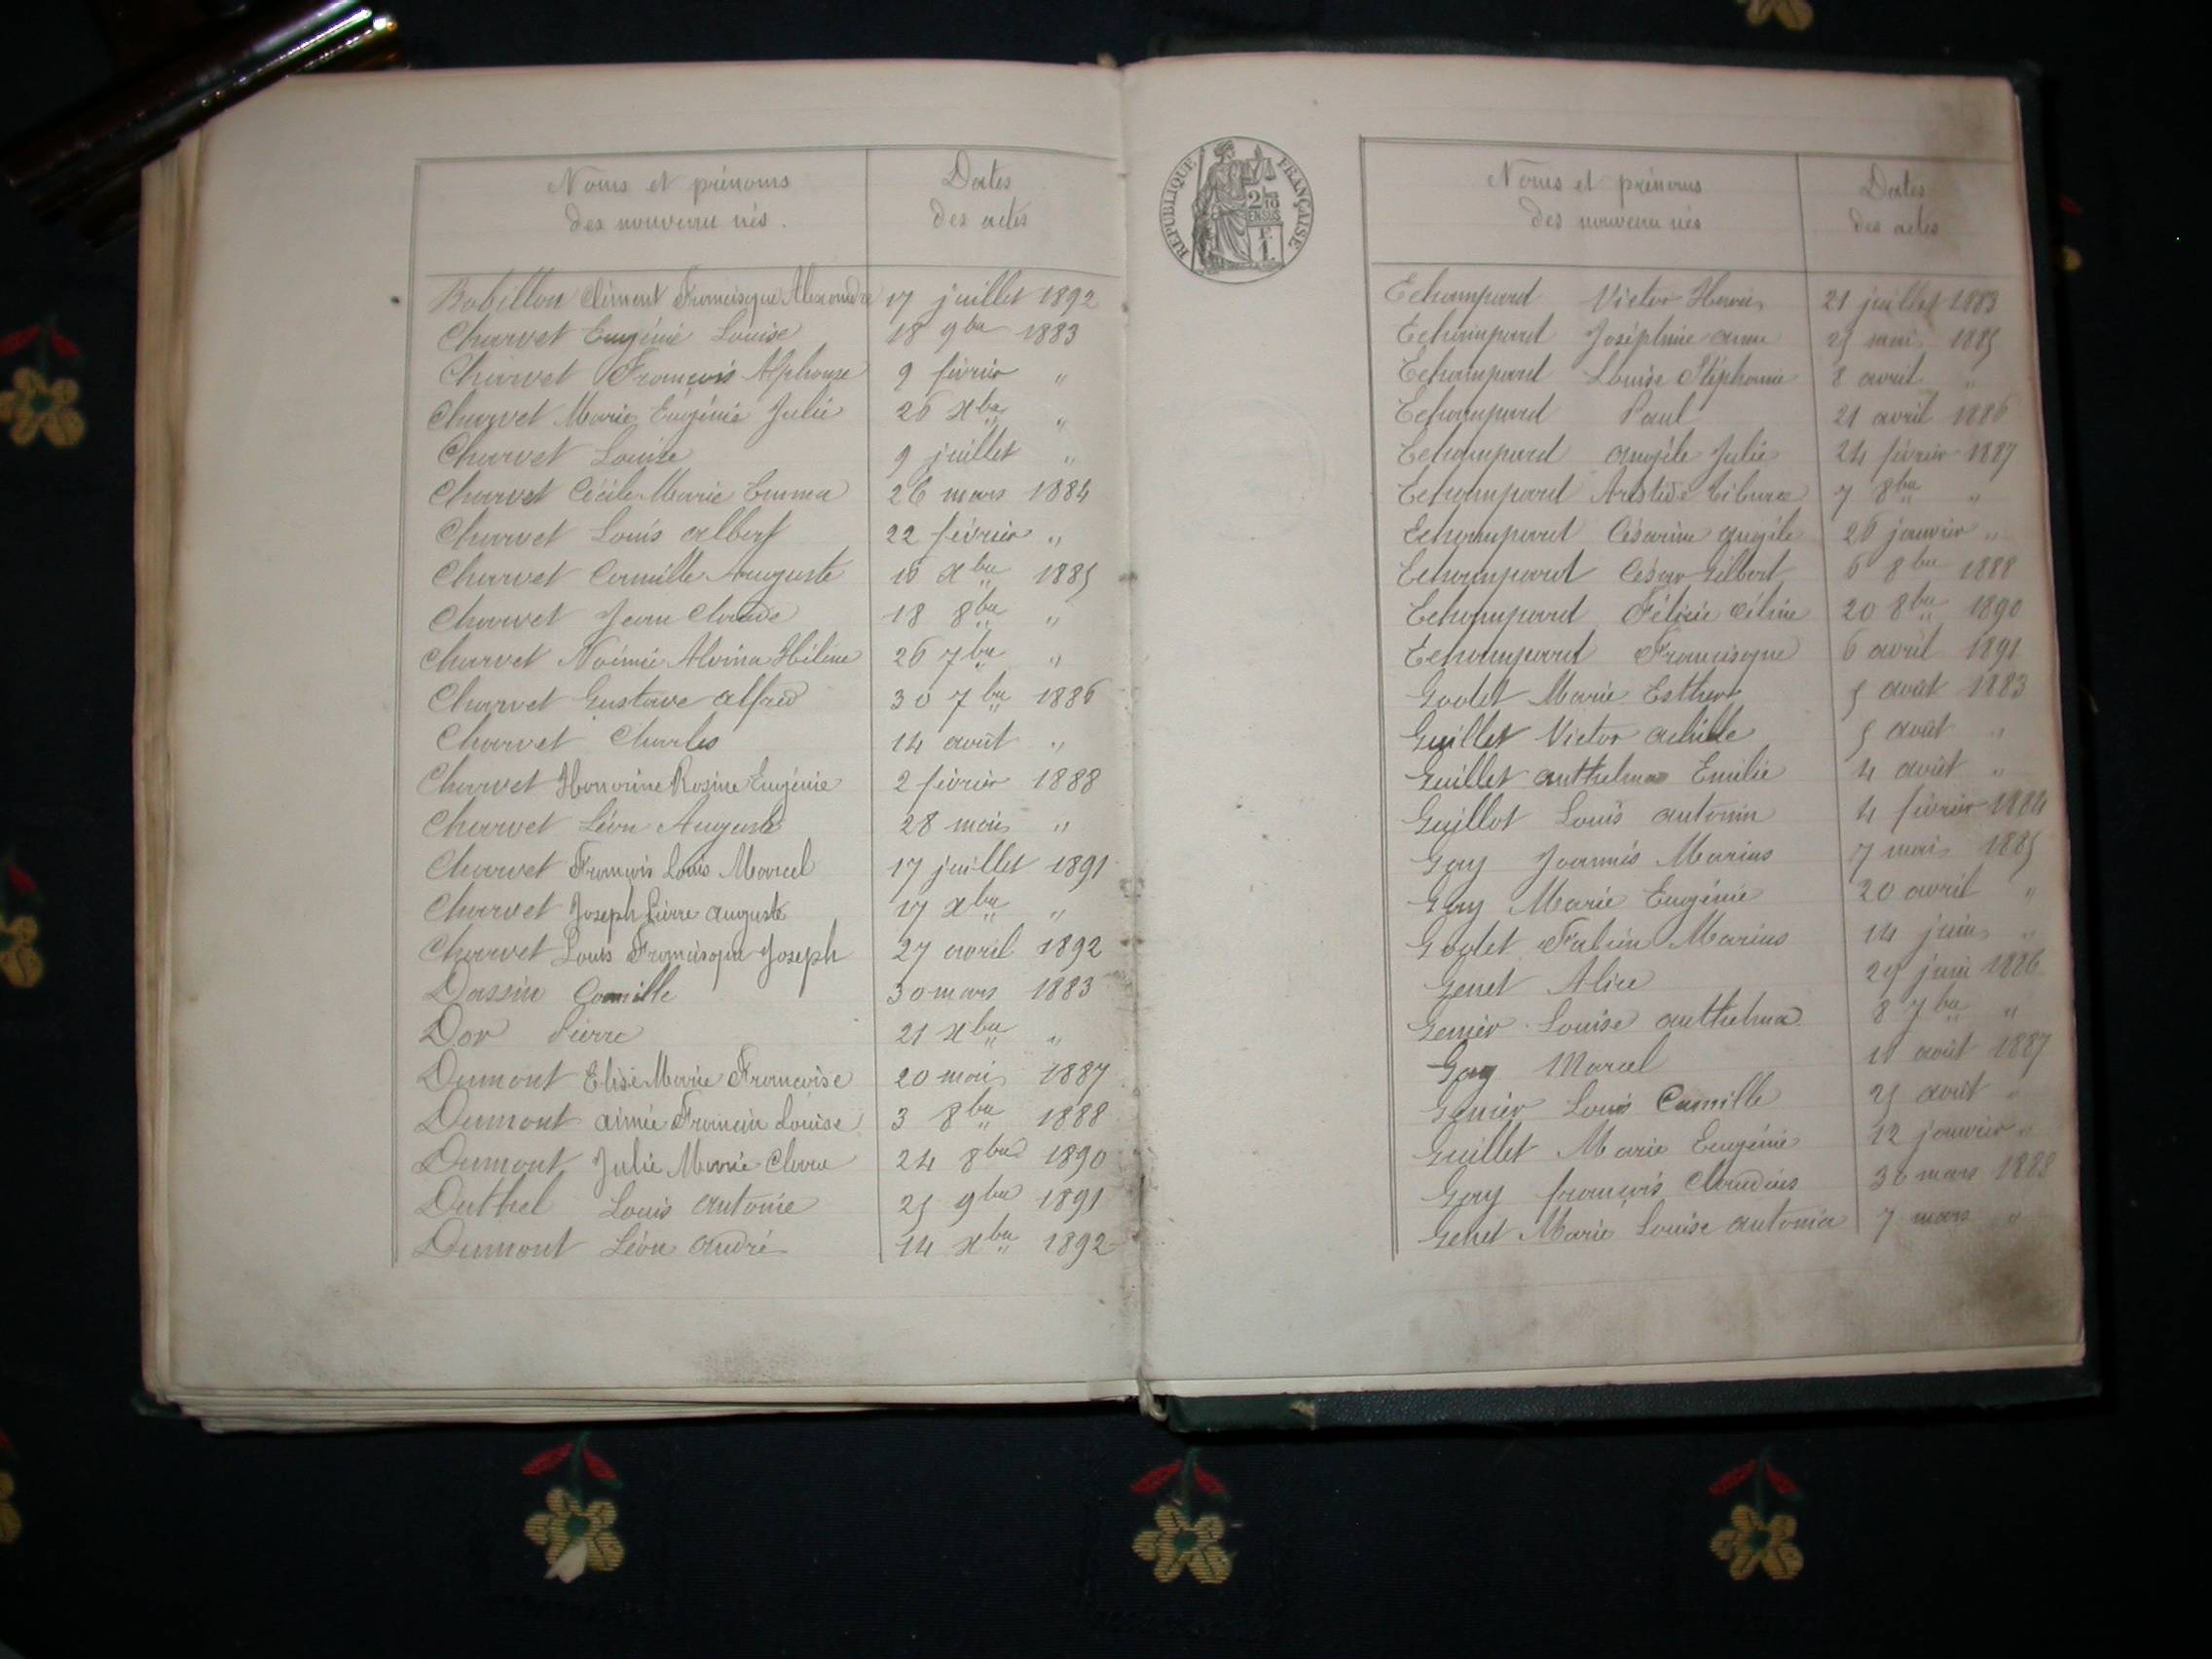 Noms et prénoms
des nouveau nés.
Dates
des actes
Robillon Clément Francisque Alexandre 17 juillet 1892
Charvet Eugénie Louise 18 9bre 1883
Charvet François Alphonse 9 février "
Charvet Marie Eugénie Julie 26 xbre "
Charvet Louise 9 juillet "
Charvet Cécile Marie Emma 26 mars 1884
Charvet Louis Albert 22 février "
Charvet Camille Auguste 10 xbre 1885
Charvet Jean Claude 18 8bre "
Charvet Noémie Alvina Hélène 26 7bre "
Charvet Gustave Alfred 30 7bre 1886
Charvet Charles 14 août "
Charvet Honorine Rosine Eugénie 2 février 1888
Charvet Léon Auguste 28 mai "
Charvet François Louis Marcel 17 juillet 1891
Charvet Joseph Pierre Auguste 17 xbre "
Charvet Louis Francisque Joseph 27 avril 1892
Dassin Camille 30 mars 1883
Dor Pierre 21 xbre "
Dumont Elise Marie Françoise 20 mai 1887
Dumont Aimée Louise 3 8bre 1888
Dumont Julie Marie Clara 24 8bre 1890
Duthel Louis Antoine 25 9bre 1891
Dumont Léon André 14 xbre 1892
RÉPUBLIQUE FRANÇAISE
2/10
EN SUS
1 F.
Noms et prénoms
des nouveau nés
Dates
des actes
Echampard Victor Henri 21 juillet 1883
Echampard Joséphine Anna 25 mai 1885
Echampard Louise Stéphanie 8 avril "
Echampard Paul 21 avril 1886
Echampard Angèle Julie 24 février 1887
Echampard Aristide 7 8bre "
Echampard Césarine Angèle 26 janvier "
Echampard César Gilbert 6 8bre 1888
Echampard Félicie Céline 20 8bre 1890
Echampard Francisque 6 avril 1891
Godet Marie Esther 5 août 1883
Guillet Victor Achille 5 août "
Guillet Anthelma Emilie 4 août "
Guillot Louis Antonin 4 février 1884
Gay Joannès Marius 7 mai 1885
Gay Marie Eugénie 20 avril "
Godet Fabien Marius 14 juin "
Genet Alice 29 juin 1886
Genier Louise Anthelma 8 7bre "
Gay Marcel 11 août 1887
Genier Louis Camille 25 août "
Guillet Marie Eugénie 12 janvier "
Gay François Claudius 30 mars 1888
Genet Marie Louise Antonia 7 mars "